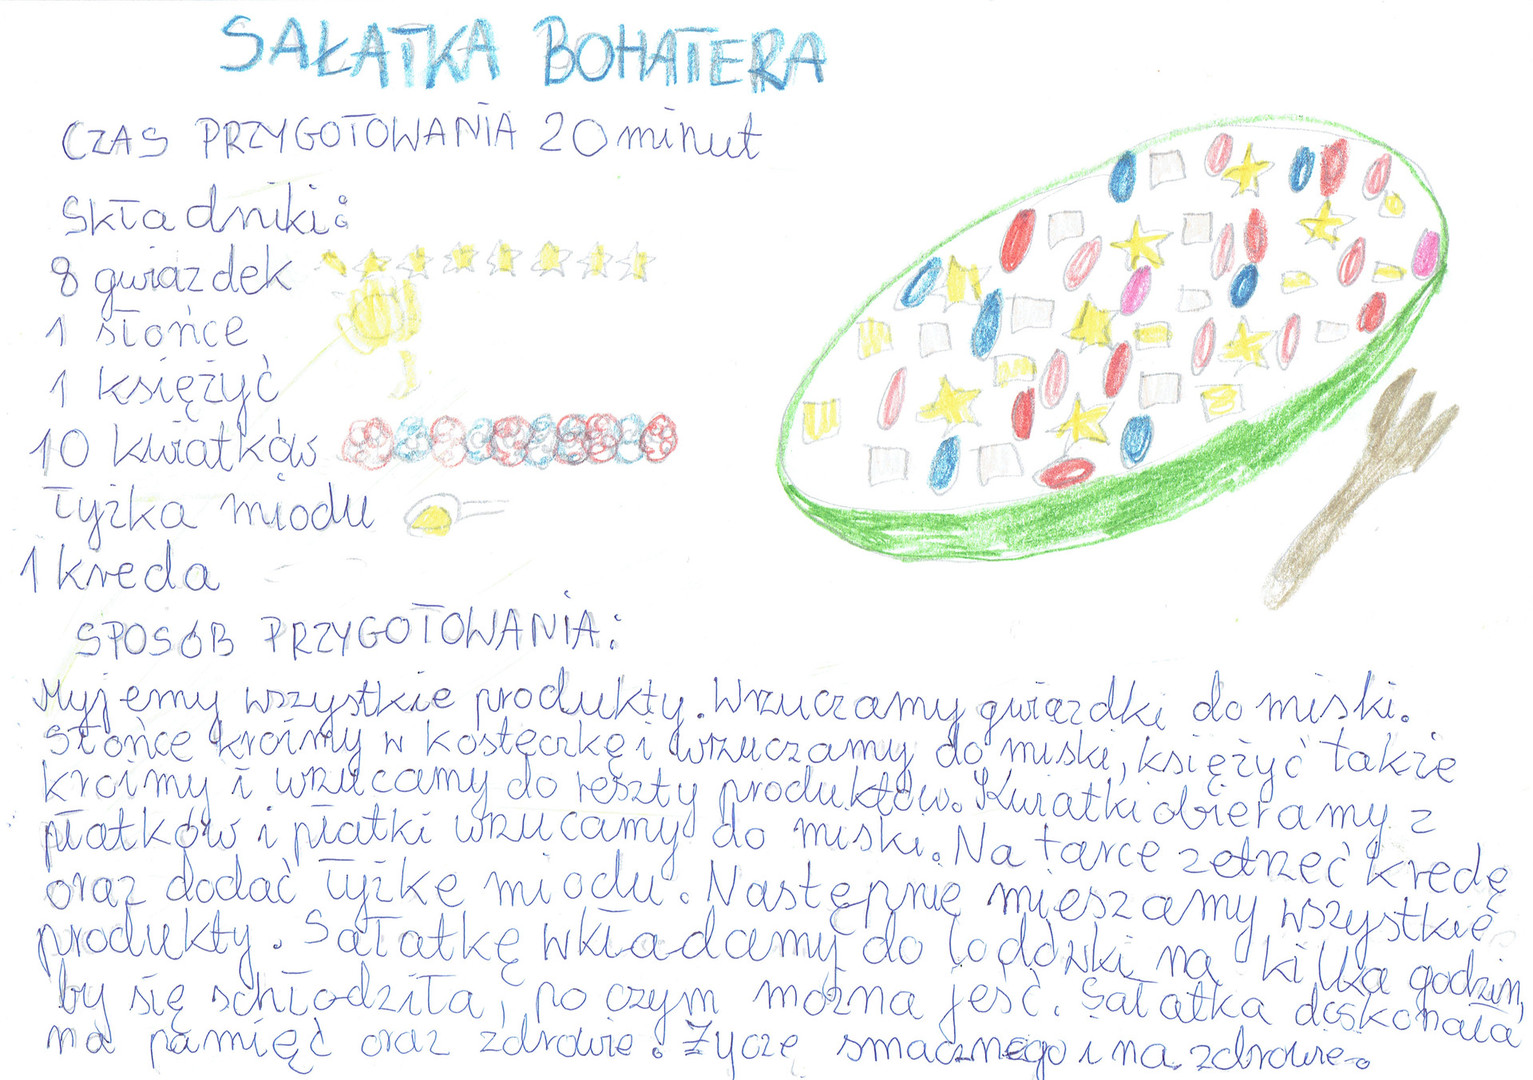 SAŁATKA BOHATERA
CZAS PRZYGOTOWANIA 20 minut
Składniki:
8 gwiazdek
1 słońce
1 księżyć
10 kwiatków
łyżka miodu
1 kreda
SPOSÓB PRZYGOTOWANIA:
Myjemy wszystkie produkty. Wrzuczamy gwiazdki do miski.
Słońce kroimy w kosteczkę i wrzuczamy do miski, księżyć także
kroimy i wrzucamy do reszty produktów. Kwiatki obieramy z
płatków i płatki wrzucamy do miski. Na tarce zetrzeć kredę
oraz dodać łyżkę miodu. Następnie mieszamy wszystkie
produkty. Sałatkę wkładamy do lodówki na kilka godzin,
by się schłodziła, po czym można jeść. Sałatka doskonała
na pamięć oraz zdrowie. Życzę smacznego i na zdrowie.